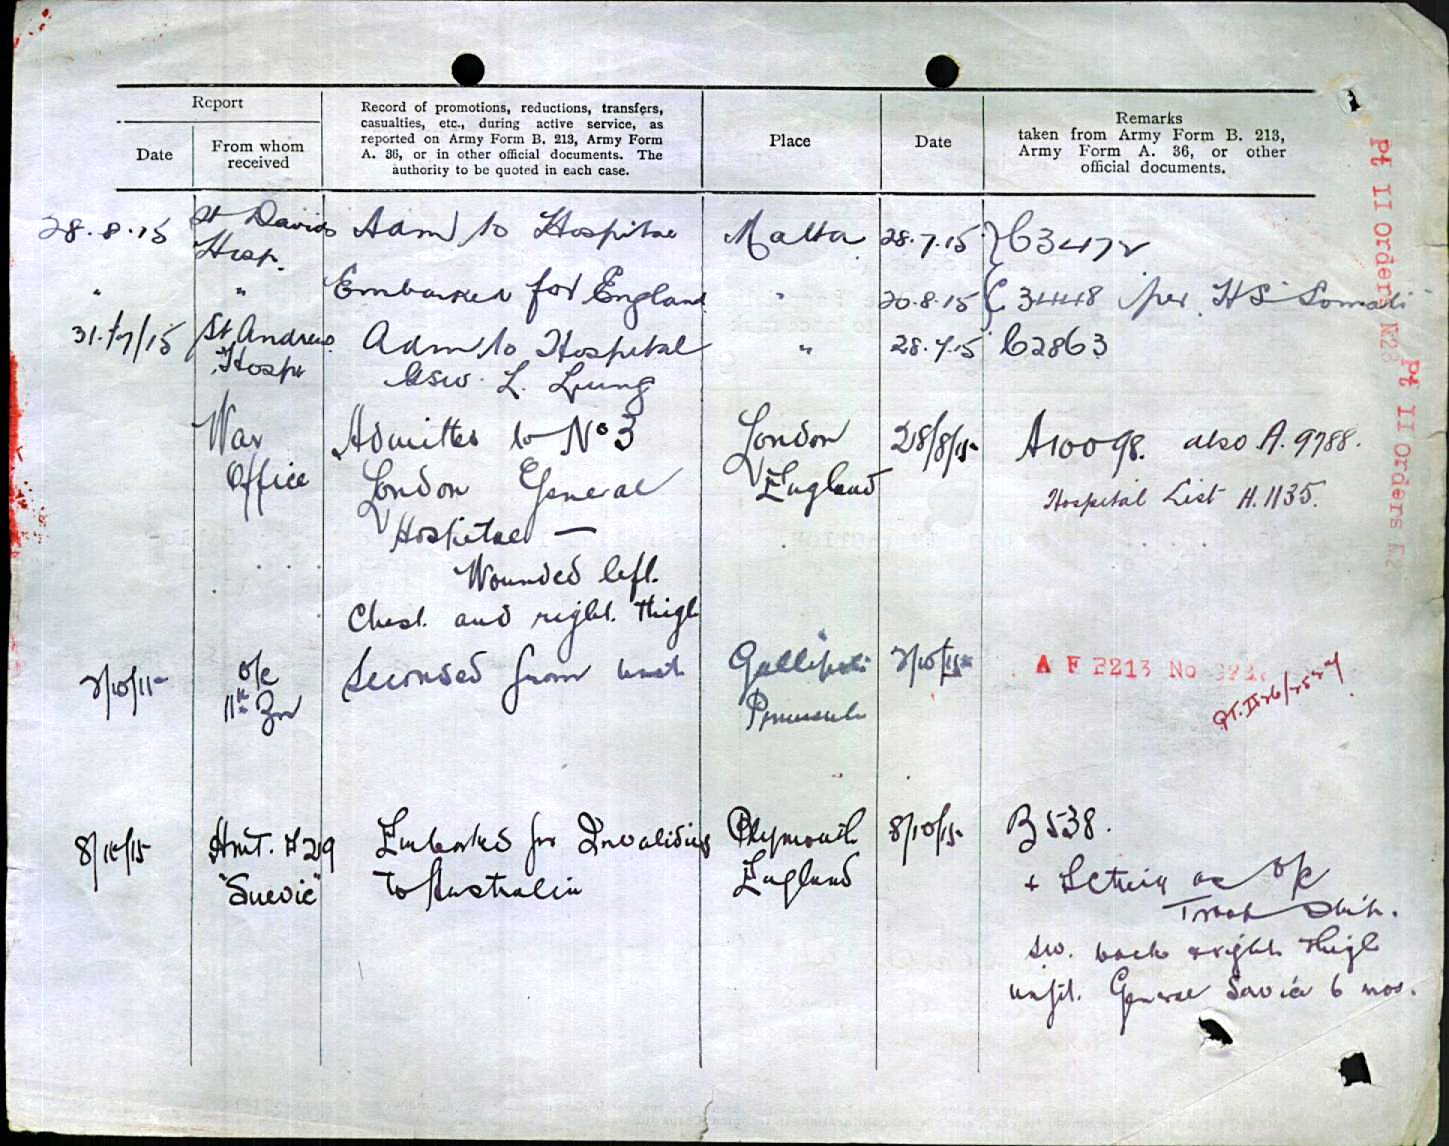 Report
Date
From whom
received
Record of promotions, reductions, transfers,
casualties, etc., during active service, as
reported on Army Form B. 213, Army Form
A. 36, or in other official documents. The
authority to be quoted in each case.
Place
Date
Remarks
taken from Army Form B. 213,
Army Form A. 36, or other
official documents.
28.8.15 St Davids Adm to Hospital Malta 28.7.15 C3472
Hosp.
" " Embarked for England " 20.8.15 C 3448 per HS Somali
31/7/15 St Andrews Adm to Hospital " 28.7.15 C2863
Hosp GSW. L. Lung
War Admitted to No 3 London 28/8/15 A10098. also A. 9788.
Office London General England Hospital List H. 1135.
Hospital —
Wounded left.
Chest. and right. Thigh
O/c Seconded from unit Gallipoli
11th Bn Peninsula
A F B213 No
8/10/15 Hmt. A29 Embarked for Invaliding Plymouth 8/10/15 B538.
"Suevic" to Australia England
+ as O/c
Troop Ship.
sw. back & right Thigh
unfit. General Service 6 mos.
Pt II Orders N28
Pt II Orders